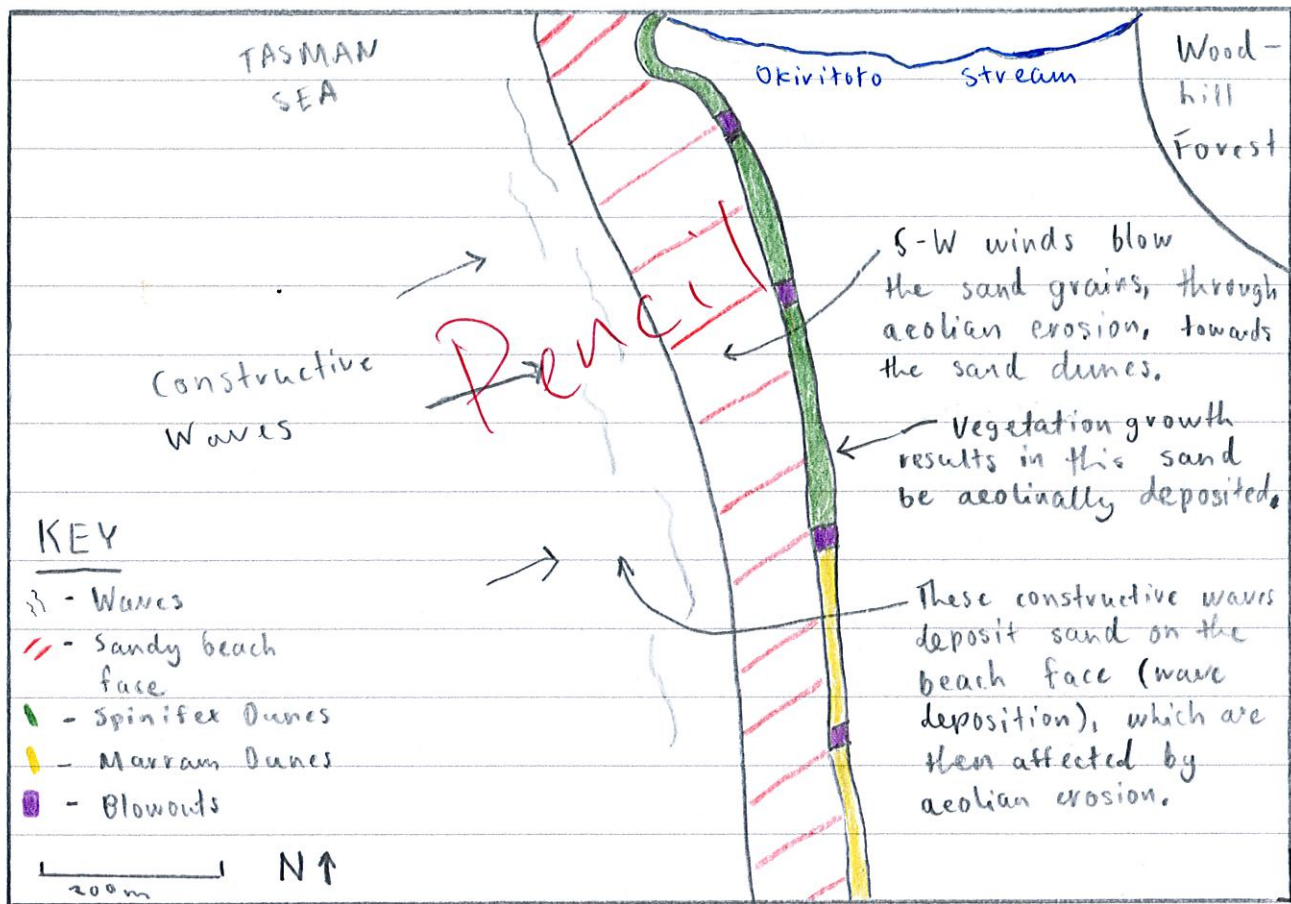 TASMAN
SEA
Okiritoto stream
Wood-
hill
Forest
S-W winds blow
the sand grains, through
aeolian erosion, towards
the sand dunes.
Pencil
Constructive
Waves
Vegetation growth
results in this sand
be aeolinally deposited.
These constructive waves
deposit sand on the
beach face (wave
deposition), which are
then affected by
aeolian erosion.
KEY
- Waves
- Sandy beach
face
- Spinifex Dunes
- Marram Dunes
- Blowouts
200m
N↑